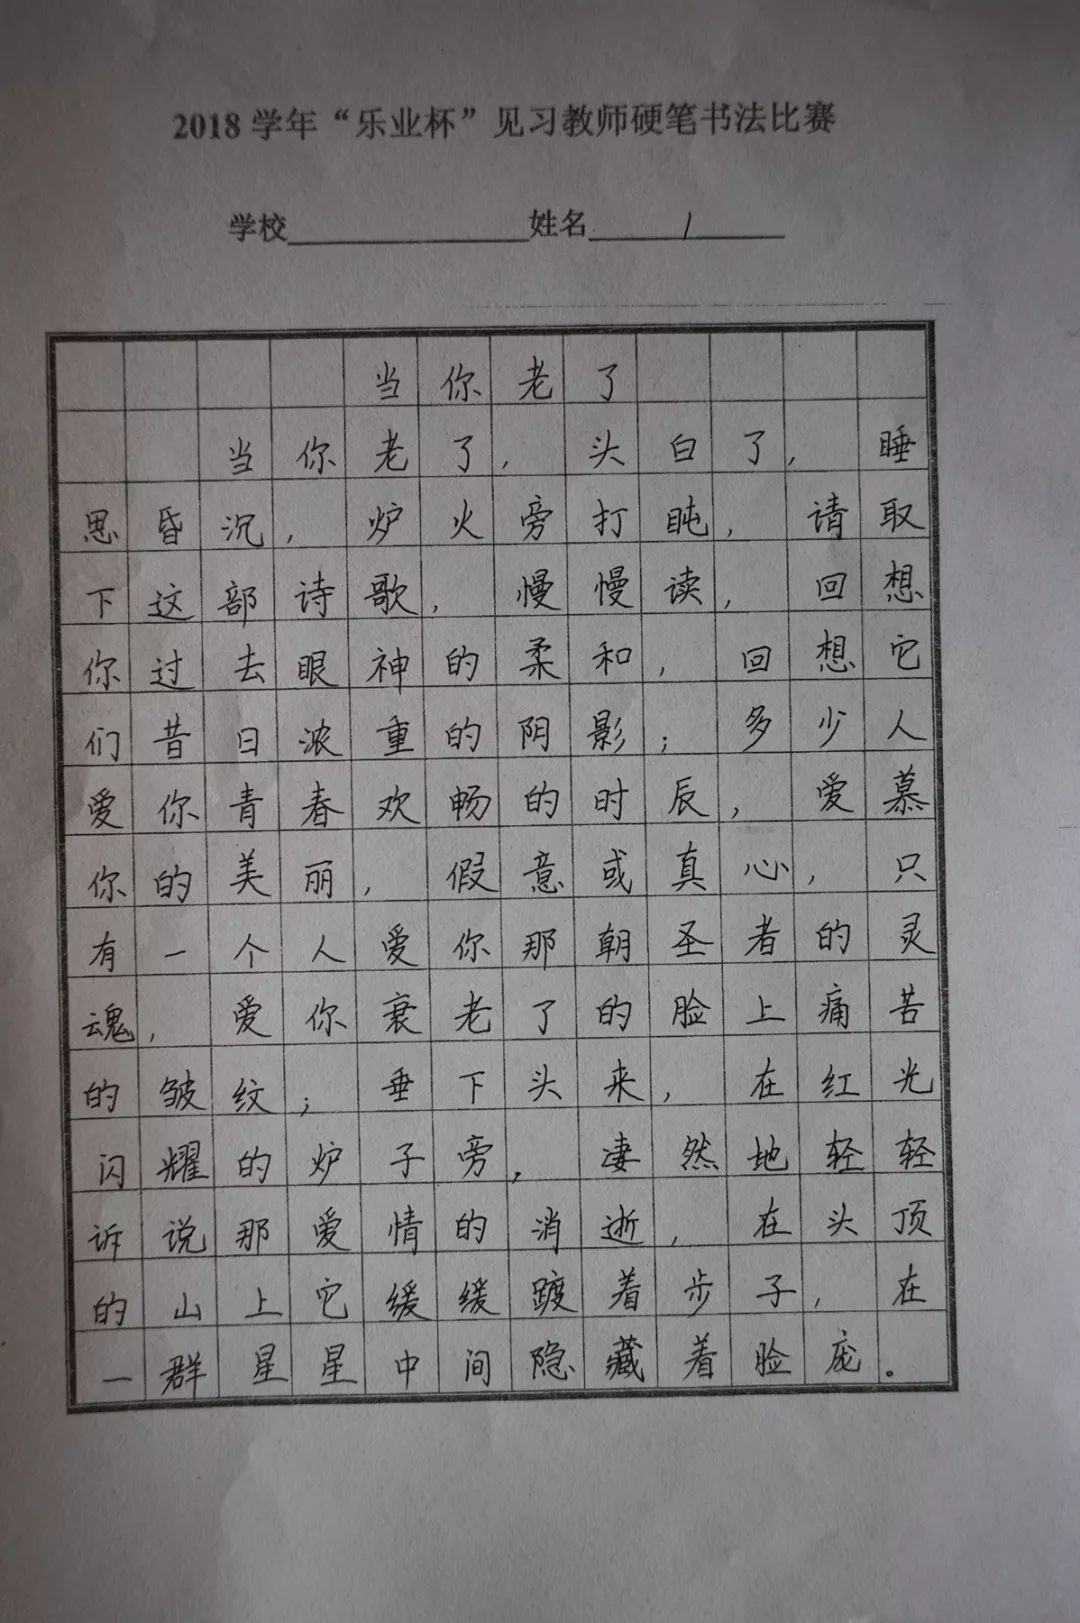 2018 学年“乐业杯”见习教师硬笔书法比赛
学校 姓名
当你老了
当你老了，头白了，睡
思昏沉，炉火旁打盹，请取
下这部诗歌，慢慢读，回想
你过去眼神的柔和，回想它
们昔日浓重的阴影；多少人
爱你青春欢畅的时辰，爱慕
你的美丽，假意或真心，只
有一个人爱你那朝圣者的灵
魂，爱你衰老了的脸上痛苦
的皱纹；垂下头来，在红光
闪耀的炉子旁，凄然地轻轻
诉说那爱情的消逝，在头顶
的山上它缓缓踱着步子，在
一群星星中间隐藏着脸庞。